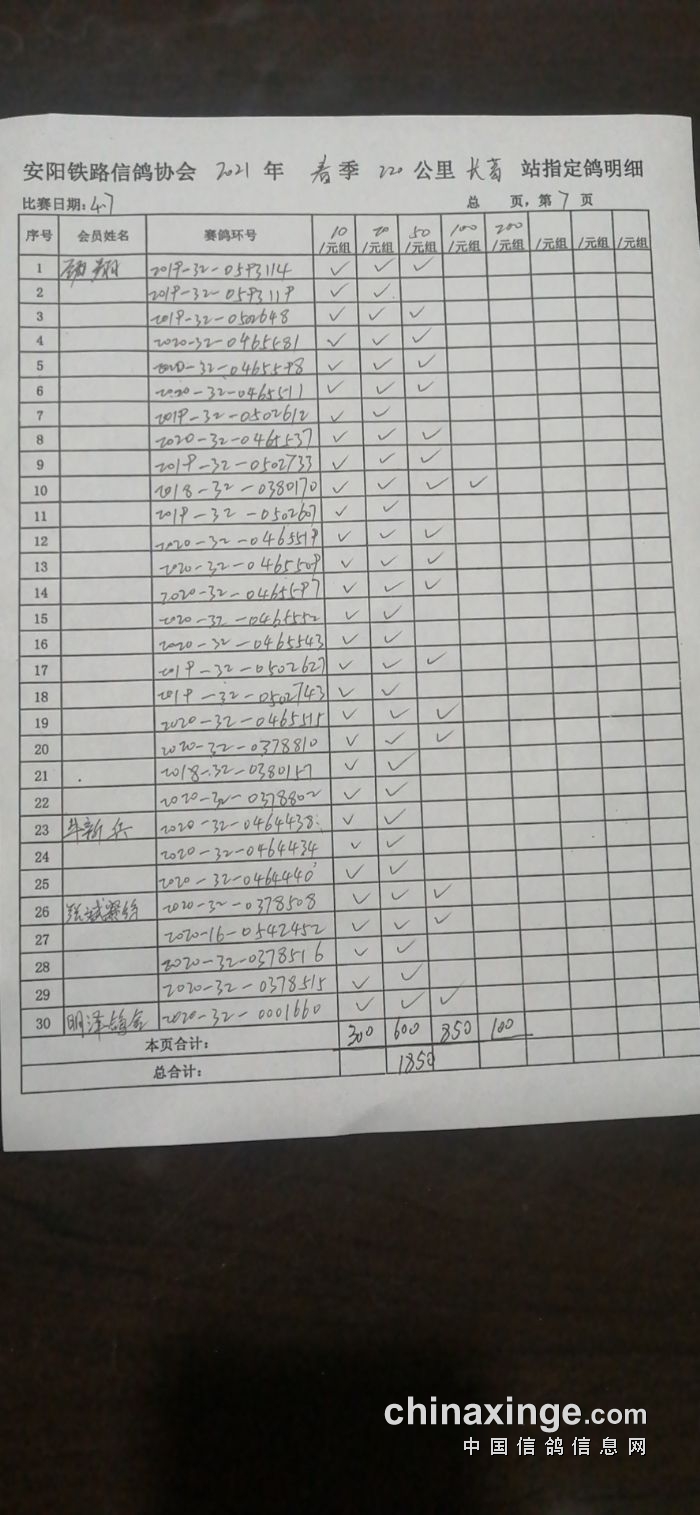 安阳铁路信鸽协会 2021 年 春季 220 公里 长葛 站指定鸽明细
比赛日期: 4.7 总 页, 第 7 页
序号 会员姓名 赛鸽环号 10/元组 20/元组 50/元组 100/元组 200/元组 /元组 /元组 /元组
1 2019-32-0593114 ✓ ✓ ✓
2 2019-32-0593119 ✓ ✓
3 2019-32-0502648 ✓ ✓ ✓
4 2020-32-0465581 ✓ ✓ ✓
5 2020-32-0465598 ✓ ✓ ✓
6 2020-32-0465511 ✓ ✓ ✓
7 2019-32-0502612 ✓ ✓
8 2020-32-0465537 ✓ ✓ ✓
9 2019-32-0502733 ✓ ✓ ✓
10 2018-32-0380170 ✓ ✓ ✓ ✓
11 2019-32-0502607 ✓ ✓
12 2020-32-0465519 ✓ ✓ ✓
13 2020-32-0465509 ✓ ✓ ✓
14 2020-32-0465597 ✓ ✓ ✓
15 2020-32-0465552 ✓ ✓
16 2020-32-0465543 ✓ ✓
17 2019-32-0502627 ✓ ✓ ✓
18 2019-32-0502743 ✓ ✓
19 2020-32-0465515 ✓ ✓ ✓
20 2020-32-0378810 ✓ ✓ ✓
21 2018-32-0380157 ✓ ✓
22 2020-32-0378802 ✓ ✓
23 牛新兵 2020-32-0464438 ✓ ✓
24 2020-32-0464434 ✓ ✓
25 2020-32-0464440 ✓ ✓
26 2020-32-0378508 ✓ ✓ ✓
27 2020-16-0542452 ✓ ✓ ✓
28 2020-32-0378516 ✓ ✓
29 2020-32-0378515 ✓ ✓
30 明泽鸽舍 2020-32-0001660 ✓ ✓ ✓
本页合计: 300 600 850 100
总合计: 1850
chinaxinge.com
中国信鸽信息网